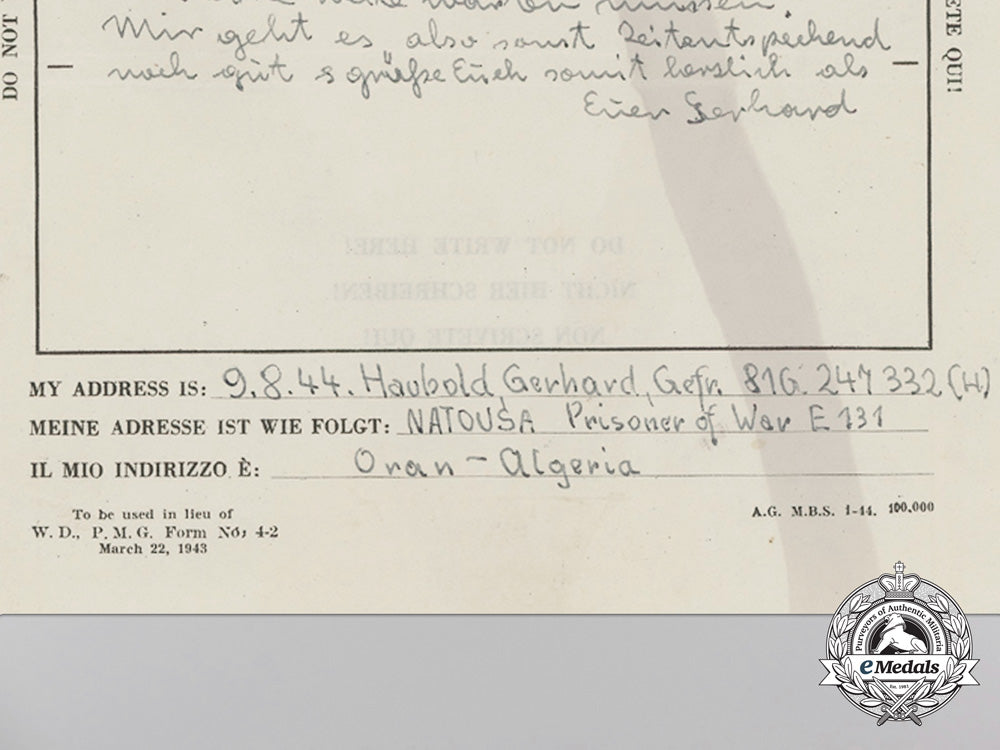 Mir geht es also sonst Zeitentsprechend
noch gut & grüße Euch somit herzlich als
Euer Gerhard
DO NOT
ETE QUI!
DO NOT WRITE HERE!
NICHT HIER SCHREIBEN!
NON SCRIVETE QUI!
MY ADDRESS IS: 9.8.44. Haubold, Gerhard, Gefr. 81G. 247 332 (H)
MEINE ADRESSE IST WIE FOLGT: NATOUSA Prisoner of War E 131
IL MIO INDIRIZZO È: Oran - Algeria
To be used in lieu of
W. D., P. M. G. Form No. 4-2
March 22, 1943
A.G. M.B.S. 1-44. 100,000
Purveyors of Authentic Militaria
eMedals